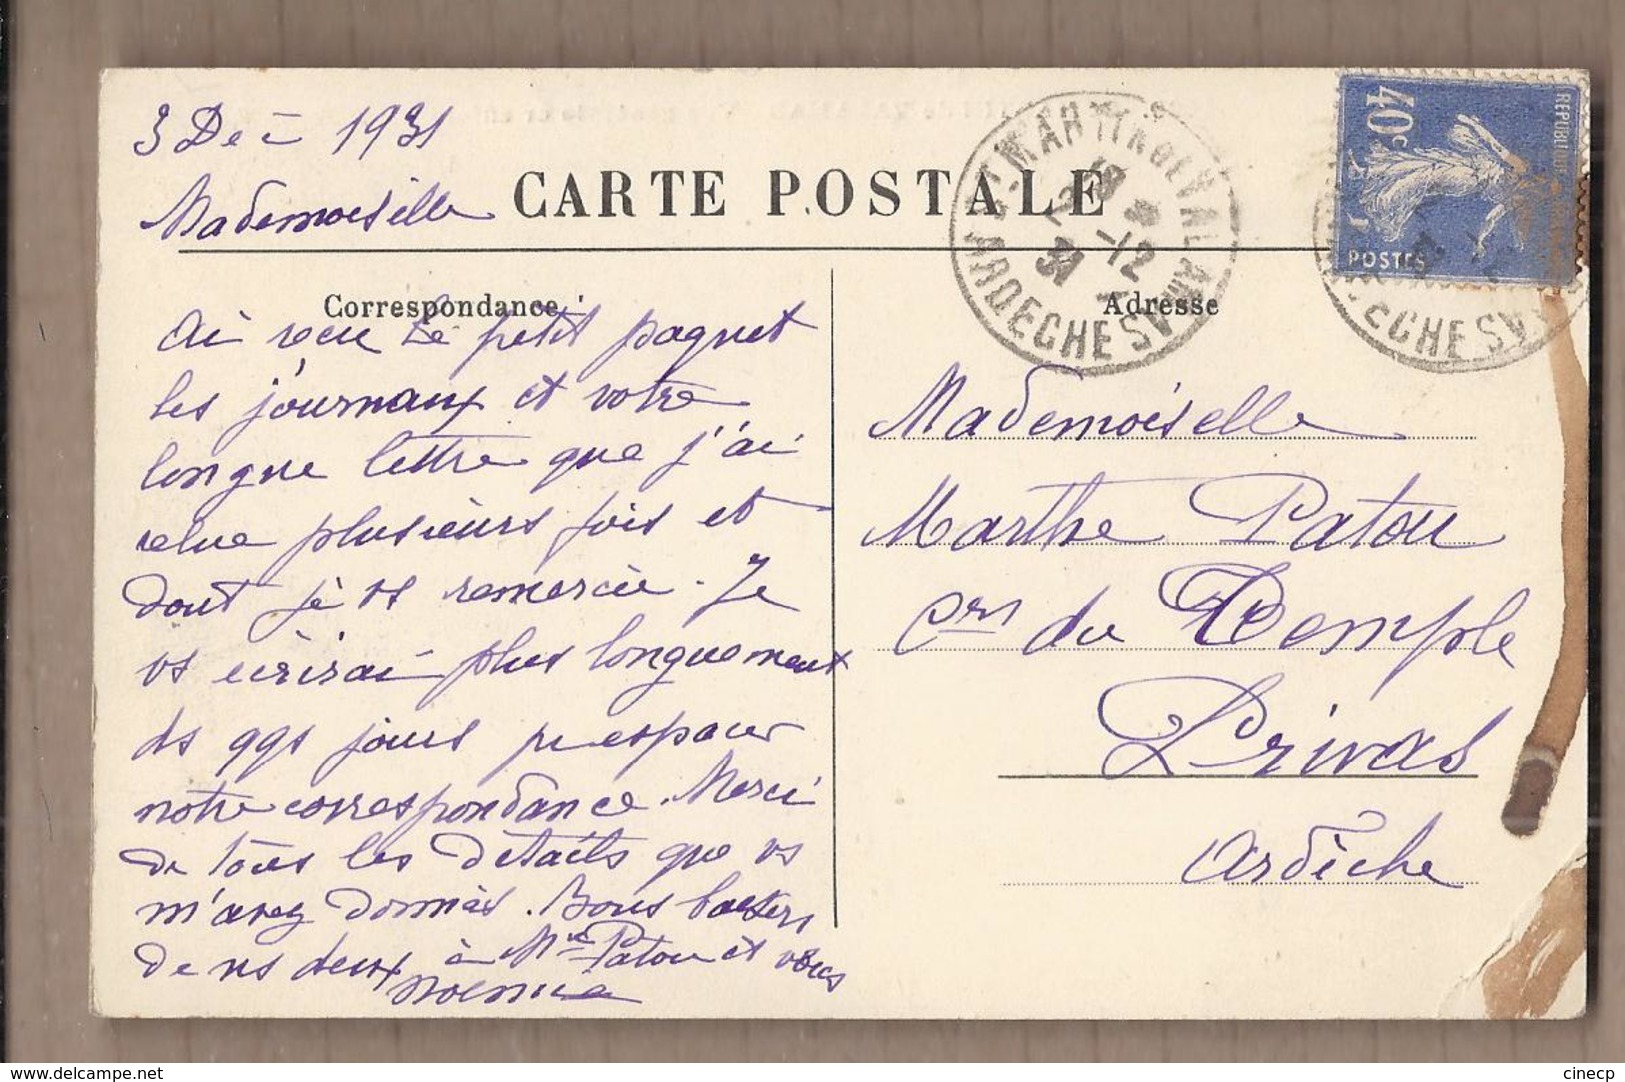 3 Dec 1931
Mademoiselle
CARTE POSTALE
Correspondance :
Adresse
ai recu le petit paquet
les journaux et votre
longue lettre que j'ai
relue plusieurs fois et
dont je vs remercie. Je
vs écrirai plus longuement
ds qqs jours pr espacer
notre correspondance. Merci
de tous les détails que vs
m'avez donnés. Bons baisers
de ns deux à Mme Patou et vous
Noémie
Mademoiselle
Marthe Patou
Crs du Temple
Privas
Ardèche
ST MARTIN DE VALAMAS
ARDECHE
18
2 -12
31
REPUBLIQUE
40c
POSTES
ECHE
cinecp
delcampe.net